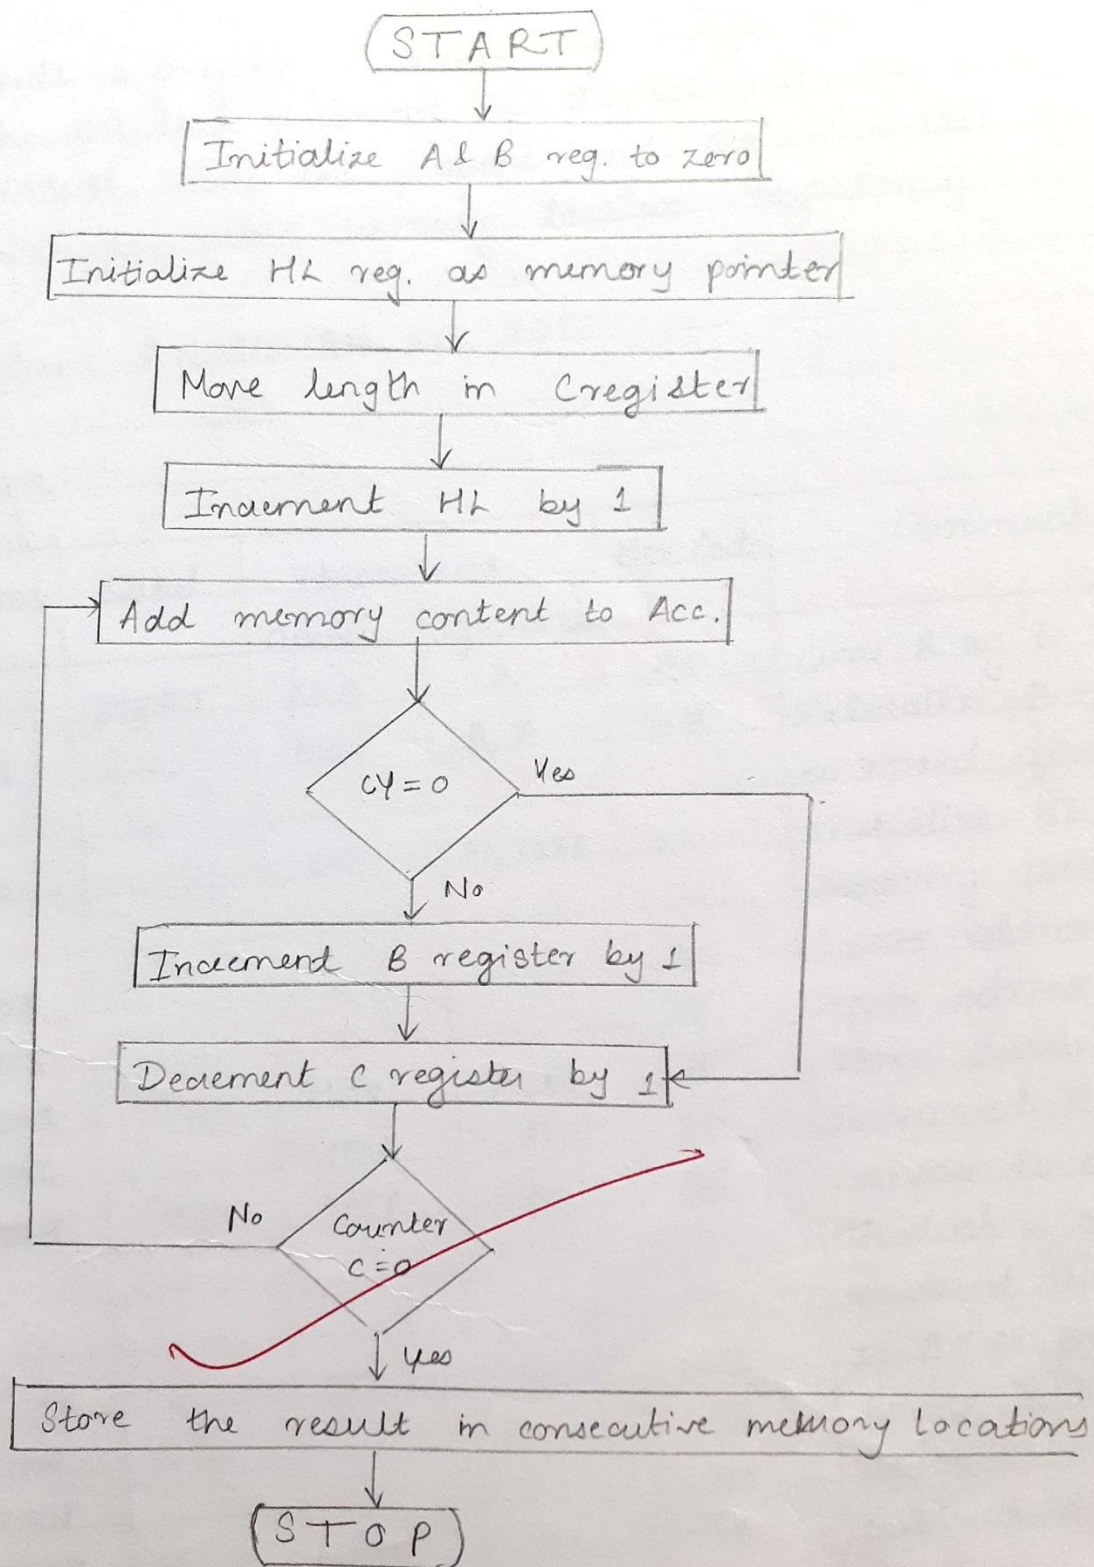 START
Initialize A & B reg. to zero
Initialize HL reg. as memory pointer
Move length in C register
Increment HL by 1
Add memory content to Acc.
CY = 0
Yes
No
Incremend B register by 1
Decrement C register by 1
No
Counter
C = 0
Yes
Store the result in consecutive memory locations
STOP